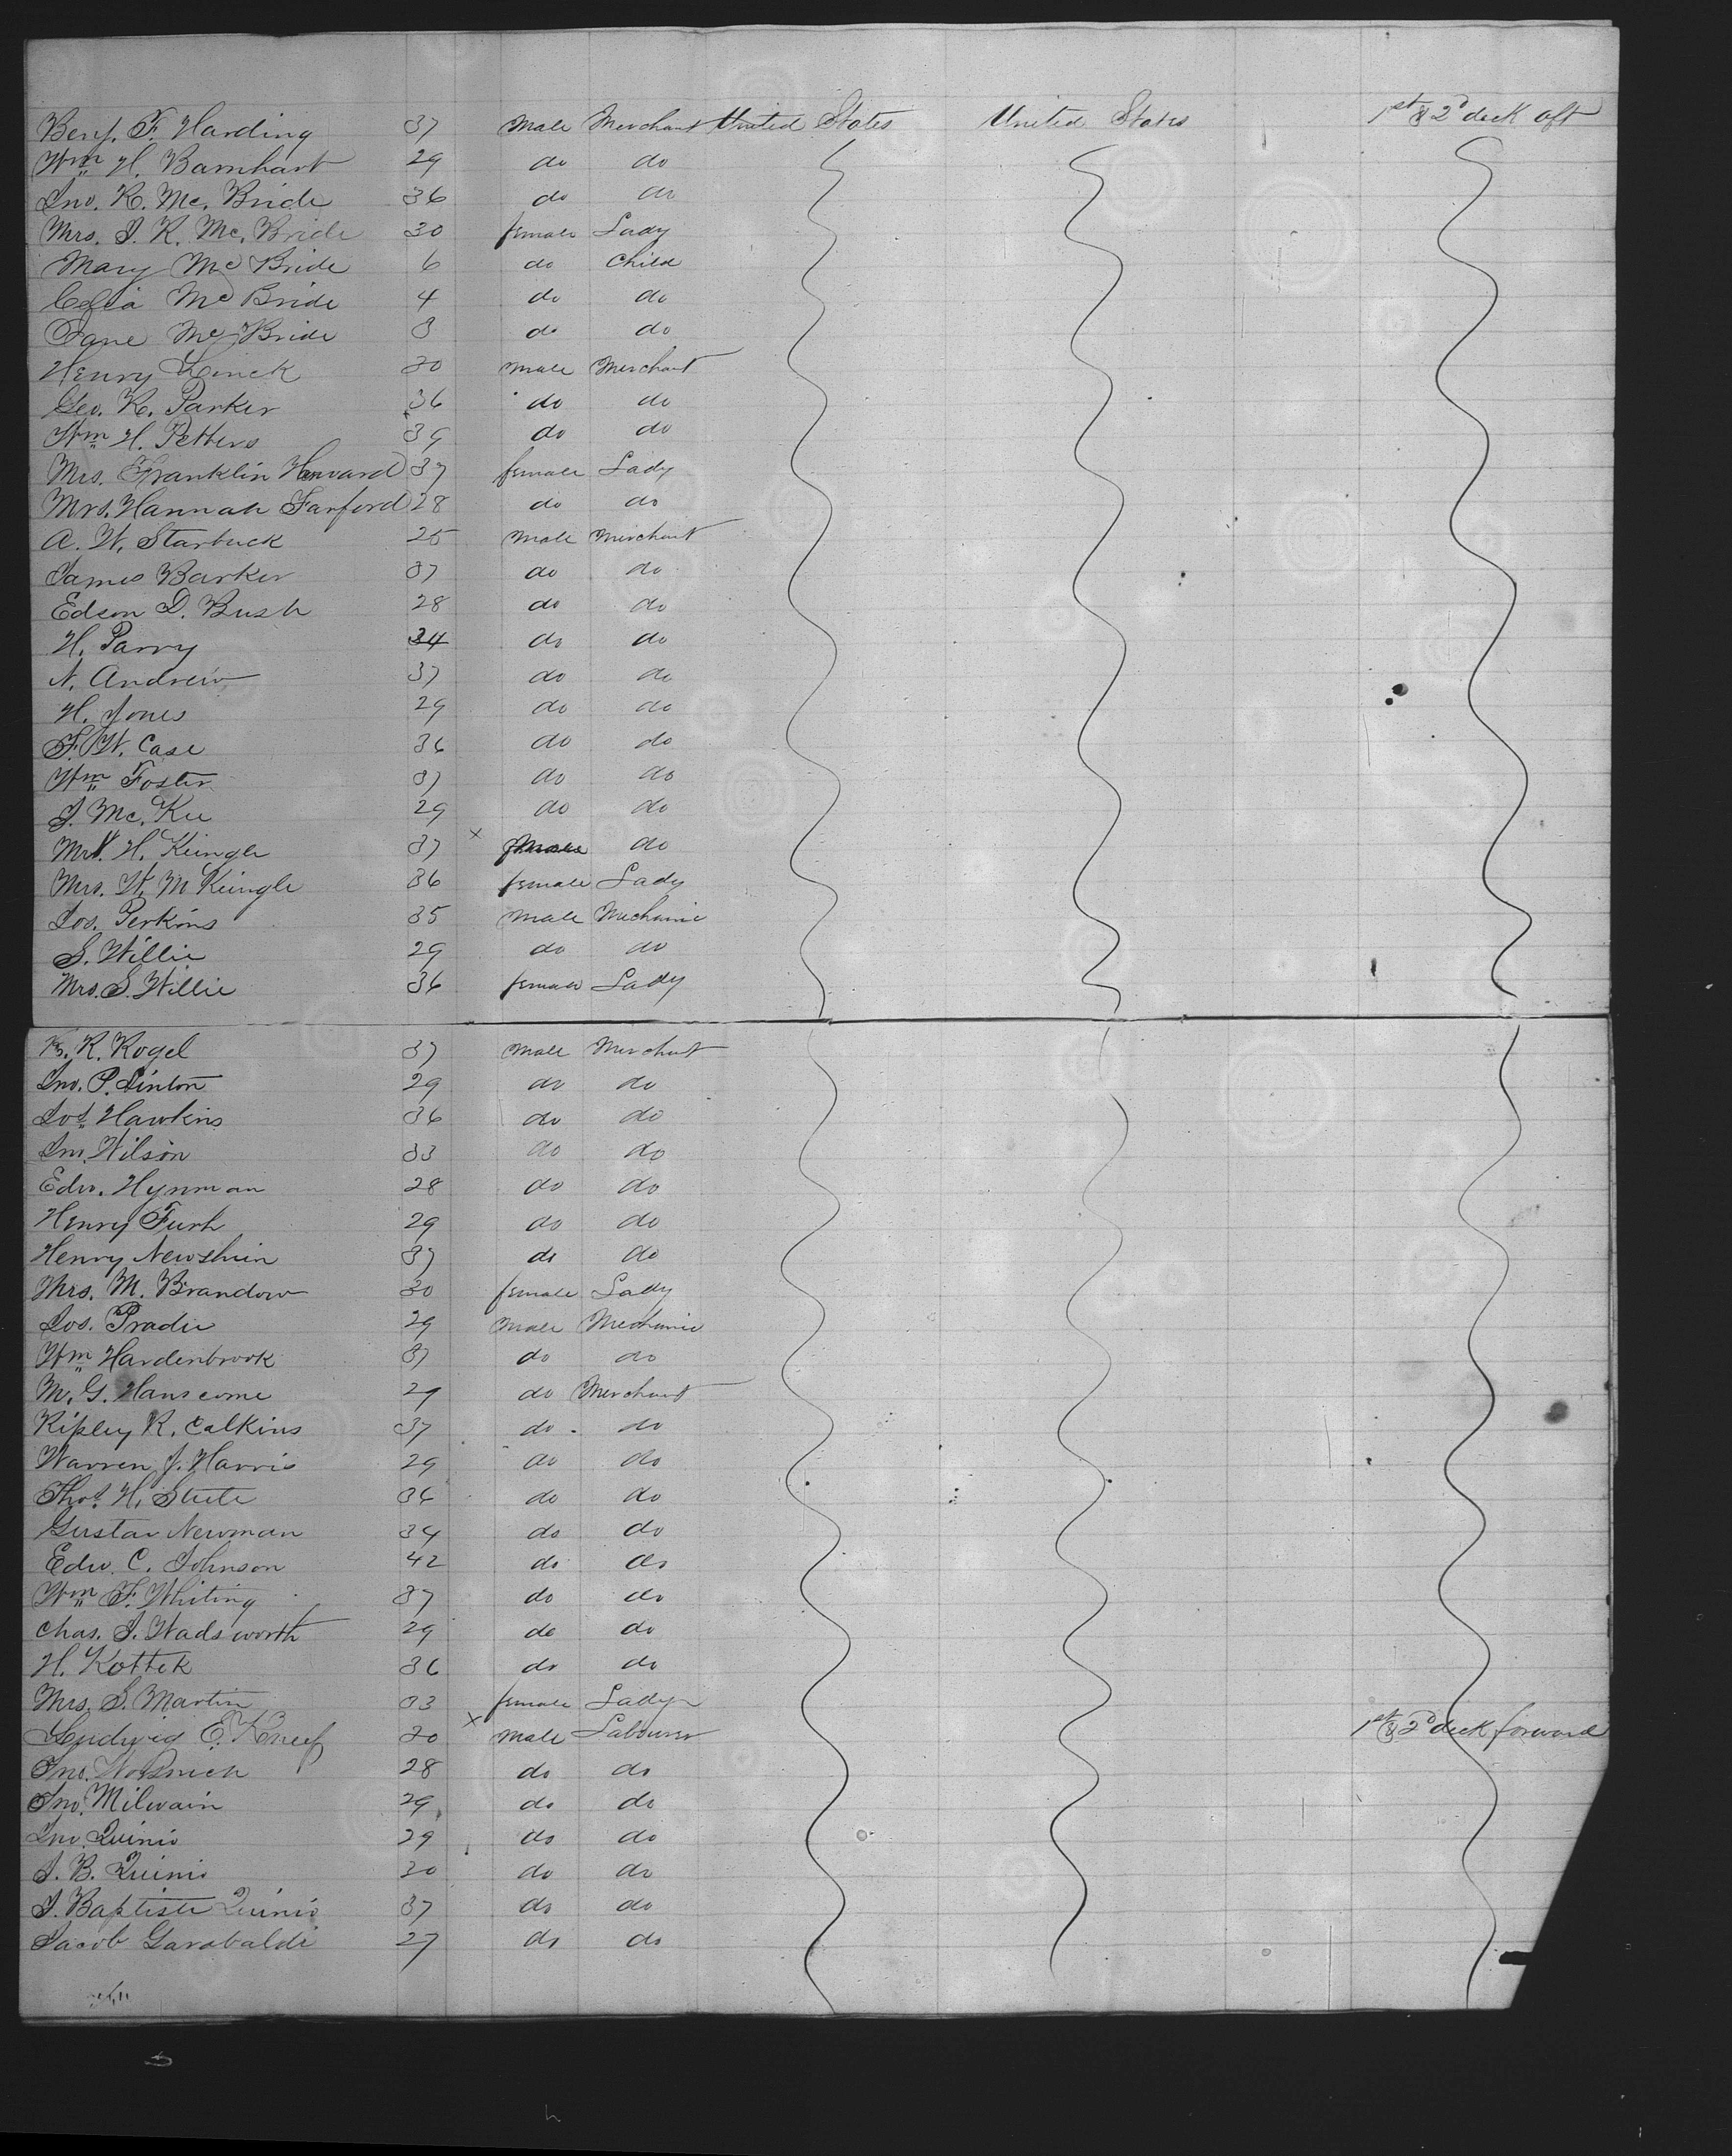 Benj. F. Harding 37 Male Merchant United States United States 1st & 2d deck aft
Wm H. Barnhart 29 do do
Jno. R. Mc. Bride 36 do do
Mrs. J. R. Mc. Bride 30 female Lady
Mary Mc Bride 6 do Child
Celia Mc Bride 4 do do
Jane Mc Bride 3 do do
Henry Linck 30 male Merchant
Geo. R. Parker 36 do do
Wm H. Petters 39 do do
Mrs. Franklin 37 female Lady
Mrs. Hannah Farford 28 do do
A. W. Starbuck 25 Male Merchant
James Barker 37 do do
Edson D. Bush 28 do do
H. Parry 34 do do
N. Andrew 37 do do
H. Jones 29 do do
F. W. Case 36 do do
Wm Foster 37 do do
J. Mc. Kee 29 do do
H. Keingle 37 x do
Mrs. W. M Keingle 36 female Lady
Jos. Perkins 35 Male Mechanic
S. Willie 29 do do
Mrs. S. Willie 36 female Lady
K. Kogel 37 Male Merchant
Jno. P. Linton 29 do do
Jos. Hawkins 36 do do
Jno. Wilson 33 do do
Edw. Hynman 28 do do
Henry Furh 29 do do
Henry Newshin 37 do do
Mrs. M. Brandow 30 female Lady
Jos. Pradie 29 Male Mechanic
Wm Hardenbrook 37 do do
M. G. Hanscome 29 do Merchant
Ripley R. Calkins 37 do do
Warren J. Harris 29 do do
Thos. H. Steele 36 do do
Gustav Newman 34 do do
Edw. C. Johnson 42 do do
Wm F. Whiting 37 do do
Chas. J. Wadsworth 29 do do
H. Kottek 36 do do
Mrs. S. Martin 33 female Lady
Ludwig E. Kneef 20 x Male Labourer 1st & 2d deck forward
Jno. 28 do do
Jno. Milwain 29 do do
Jno. Quinio 29 do do
J. B. Quinio 30 do do
J. Baptiste Quinio 37 do do
Jacob Garabaldi 27 do do